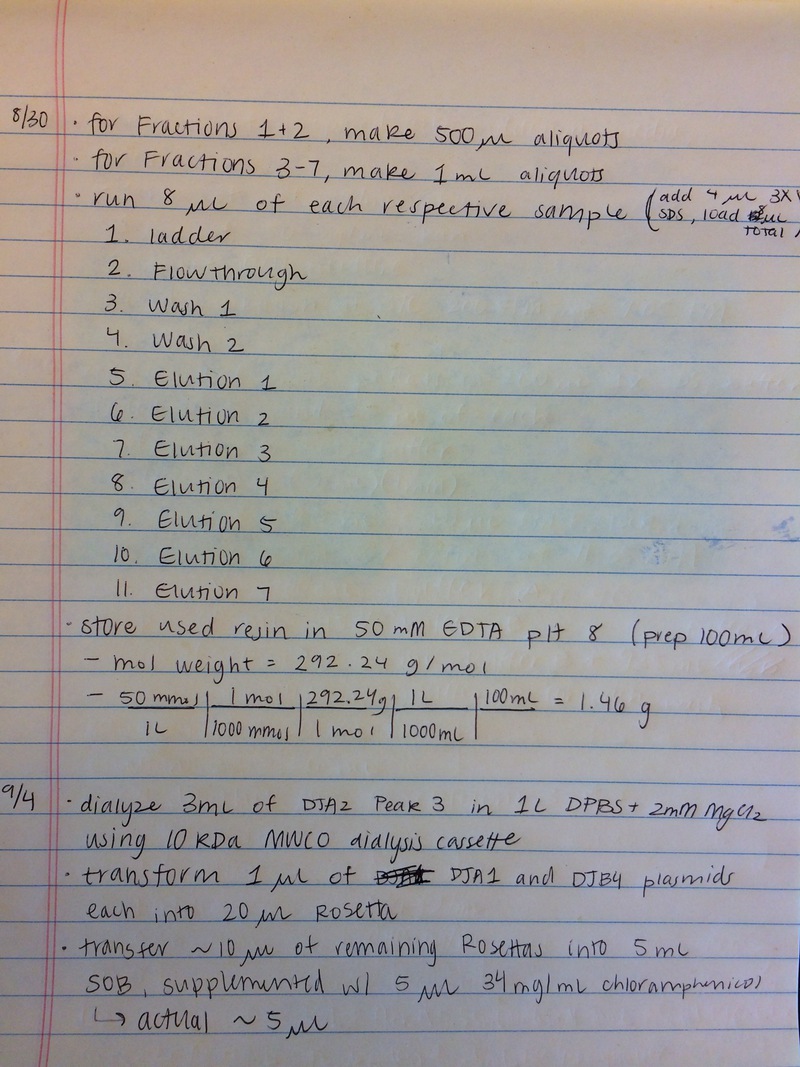 8/30 · for Fractions 1+2, make 500 μl aliquots
· for Fractions 3-7, make 1 mL aliquots
· run 8 μL of each respective sample (add 4 μL 3X
SDS, load 8 μL
total
1. ladder
2. Flowthrough
3. Wash 1
4. Wash 2
5. Elution 1
6. Elution 2
7. Elution 3
8. Elution 4
9. Elution 5
10. Elution 6
11. Elution 7
· store used resin in 50 mM EDTA pH 8 (prep 100mL)
- mol weight = 292.24 g/mol
- 50 mmol | 1 mol | 292.24g | 1L | 100mL = 1.46 g
1L | 1000 mmol | 1 mol | 1000mL |
9/4 · dialyze 3mL of DJA2 Peak 3 in 1L DPBS + 2mM MgCl2
using 10 KDa MWCO dialysis cassette
· transform 1 μl of DJA1 and DJB4 plasmids
each into 20 μl Rosetta
· transfer ~10 μl of remaining Rosettas into 5 mL
SOB, supplemented w/ 5 μL 34 mg/mL chloramphenicol
↳ actual ~ 5 μL